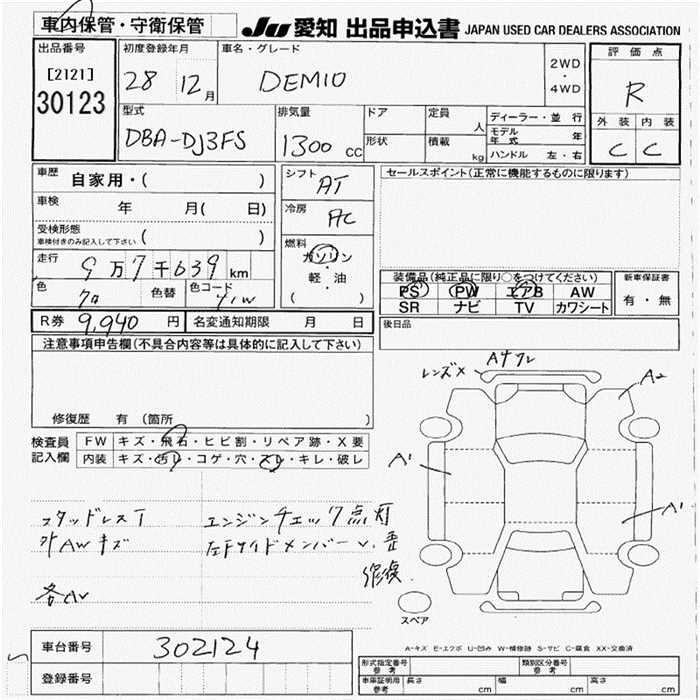 車内保管・守衛保管
JU 愛知 出品申込書 JAPAN USED CAR DEALERS ASSOCIATION
出品番号
[2121]
30123
初度登録年月
28 12月
車名・グレード
DEMIO
2WD
・
4WD
評価点
R
外装 内装
C C
型式
DBA-DJ3FS
排気量
1300 cc
ドア
形状
定員
人
積載
kg
ディーラー・並行
モデル年式 年
ハンドル 左・右
車歴 自家用・( )
車検 年 月( 日)
受検形態
車検付きのみ記入して下さい ( )
走行 9万7千639km
色 クロ
色替
色コード 41W
シフト
AT
冷房
AC
燃料
ガソリン
・
軽・油
( )
セールスポイント(正常に機能するものに限ります)
装備品(純正品に限り○をつけてください)
PS PW エアB AW
SR ナビ TV カワシート
新車保証書
有・無
R券 9,940円 名変通知期限 月 日
後日品
注意事項申告欄(不具合内容等は具体的に記入して下さい)
修復歴 有 (箇所 )
検査員記入欄
FW キズ・飛石・ヒビ割・リペア跡・X要
内装 キズ・汚レ・コゲ・穴・スレ・キレ・破レ
スタッドレスT
外AWキズ
各AU
エンジンチェック点灯
左Fサイドメンバー
修復
レンズX
A2
A1
A1
スペア
A-キズ E-エクボ U-凹み W-補修跡 S-サビ C-腐食 XX-交換済
車台番号 302124
登録番号
形式指定番号 参考
類別区分番号 参考
車庫証明用 参考 長さ cm 幅 cm 高さ cm